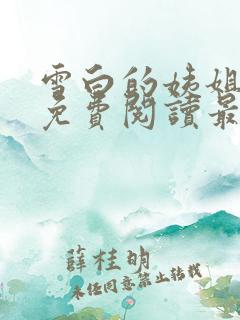 雪白的姨姐
免費閱讀最
薛桂明
未经同意禁止转载